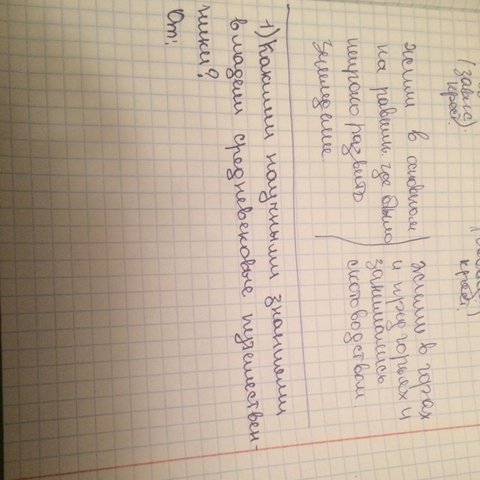 (завис.
крест.)
крест.
жили в основном
на равнин. где было
широко развито
земледелие
жили в горах
и предгорьях и
занимались
скотоводством
1) Какими научными знаниями
владели средневековые путешествен-
ники?
От: